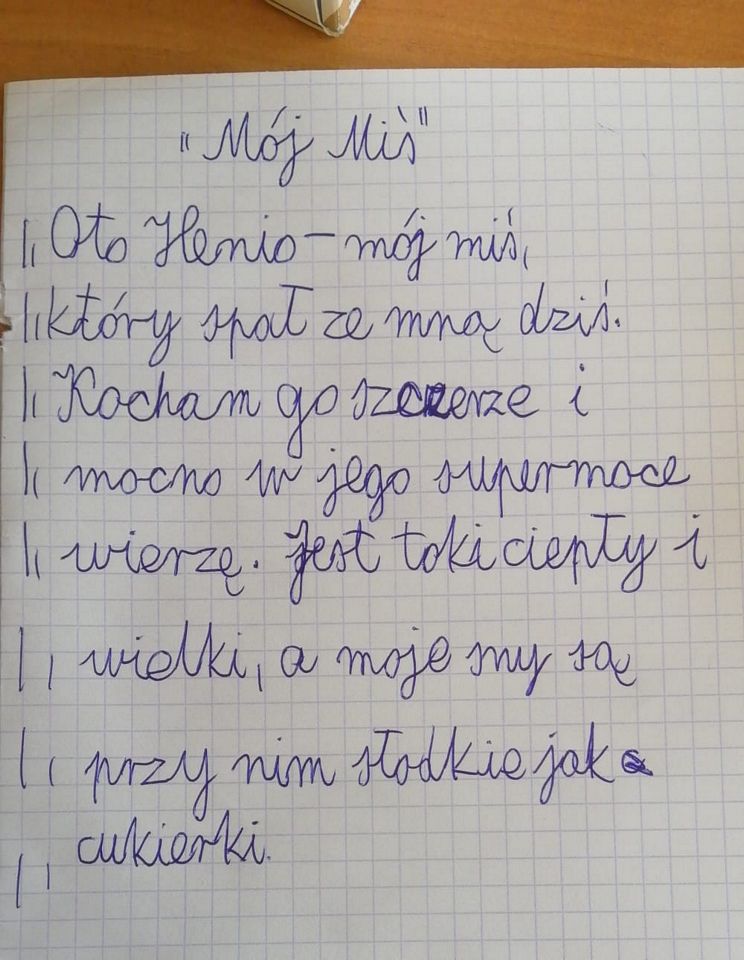 "Mój Miś"
Oto Henio - mój miś,
który spał ze mną dziś.
Kocham go szczerze i
mocno w jego supermoce
wierzę. Jest taki ciepły i
wielki, a moje sny są
przy nim słodkie jak
cukierki.